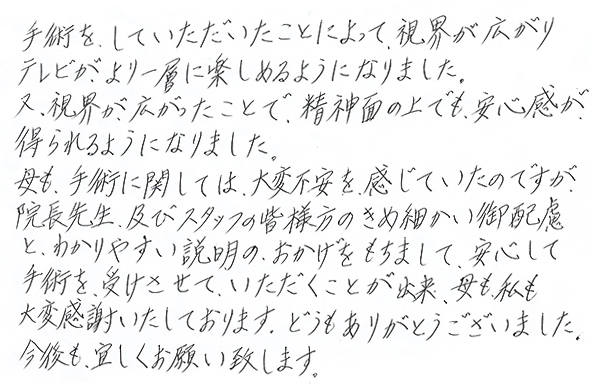 手術を、していただいたことによって、視界が広がり
テレビが、より一層に楽しめるようになりました。
又、視界が、広がったことで、精神面の上でも、安心感が、
得られるようになりました。
母も、手術に関しては、大変不安を、感じていたのですが、
院長先生、及びスタッフの皆様方のきめ細かい御配慮
と、わかりやすい説明の、おかげをもちまして、安心して
手術を、受けさせて、いただくことが出来、母も、私も
大変感謝いたしております。どうもありがとうございました。
今後も、宜しくお願い致します。